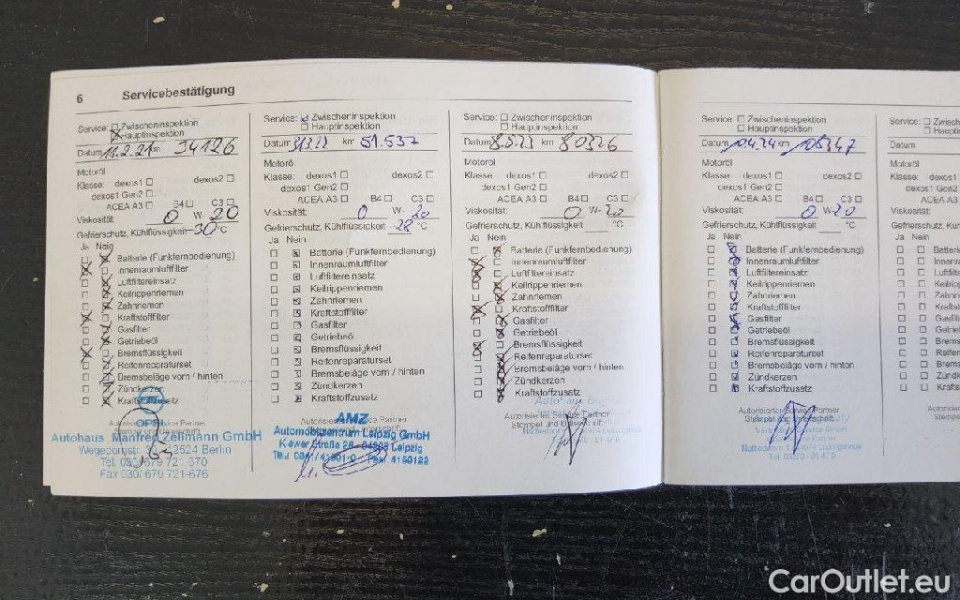 6 Servicebestätigung
Service: Zwischeninspektion
Hauptinspektion
Datum 11.2.21 km 34126
Motoröl
Klasse: dexos1 dexos2
dexos1 Gen2
ACEA A3 B4 C3
Viskosität: 0 W- 20
Gefrierschutz, Kühlflüssigkeit -30 °C
Ja Nein
Batterie (Funkfernbedienung)
Innenraumluftfilter
Luftfiltereinsatz
Keilrippenriemen
Zahnriemen
Kraftstofffilter
Gasfilter
Getriebeöl
Bremsflüssigkeit
Reifenreparaturset
Bremsbeläge vorn / hinten
Zündkerzen
Kraftstoffzusatz
Autohaus Manfred Zellmann GmbH
12524 Berlin
Fax 030/ 679 721-676
Service: Zwischeninspektion
Hauptinspektion
Datum km 51.537
Motoröl
Klasse: dexos1 dexos2
dexos1 Gen2
ACEA A3 B4 C3
Viskosität: 0 W- 20
Gefrierschutz, Kühlflüssigkeit -28 °C
Ja Nein
Batterie (Funkfernbedienung)
Innenraumluftfilter
Luftfiltereinsatz
Keilrippenriemen
Zahnriemen
Kraftstofffilter
Gasfilter
Getriebeöl
Bremsflüssigkeit
Reifenreparaturset
Bremsbeläge vorn / hinten
Zündkerzen
Kraftstoffzusatz
Autorisierter Service Partner
AMZ
Automobilzentrum Leipzig GmbH
Leipzig
Service: Zwischeninspektion
Hauptinspektion
Datum km 80326
Motoröl
Klasse: dexos1 dexos2
dexos1 Gen2
ACEA A3 B4 C3
Viskosität: 0 W- 20
Gefrierschutz, Kühlflüssigkeit °C
Ja Nein
Batterie (Funkfernbedienung)
Innenraumluftfilter
Luftfiltereinsatz
Keilrippenriemen
Zahnriemen
Kraftstofffilter
Gasfilter
Getriebeöl
Bremsflüssigkeit
Reifenreparaturset
Bremsbeläge vorn / hinten
Zündkerzen
Kraftstoffzusatz
Autorisierter Service Partner
Stempel und
Service: Zwischeninspektion
Hauptinspektion
Datum 10.4.24 km 108347
Motoröl
Klasse: dexos1 dexos2
dexos1 Gen2
ACEA A3 B4 C3
Viskosität: 0 W- 20
Gefrierschutz, Kühlflüssigkeit °C
Ja Nein
Batterie (Funkfernbedienung)
Innenraumluftfilter
Luftfiltereinsatz
Keilrippenriemen
Zahnriemen
Kraftstofffilter
Gasfilter
Getriebeöl
Bremsflüssigkeit
Reifenreparaturset
Bremsbeläge vorn / hinten
Zündkerzen
Kraftstoffzusatz
Autorisierter Service Partner
Service:
Datum
Motoröl
Klasse: dexos1
dexos1 Gen2
ACEA A3
Viskosität:
Gefrierschutz,
Ja Nein
CarOutlet.eu